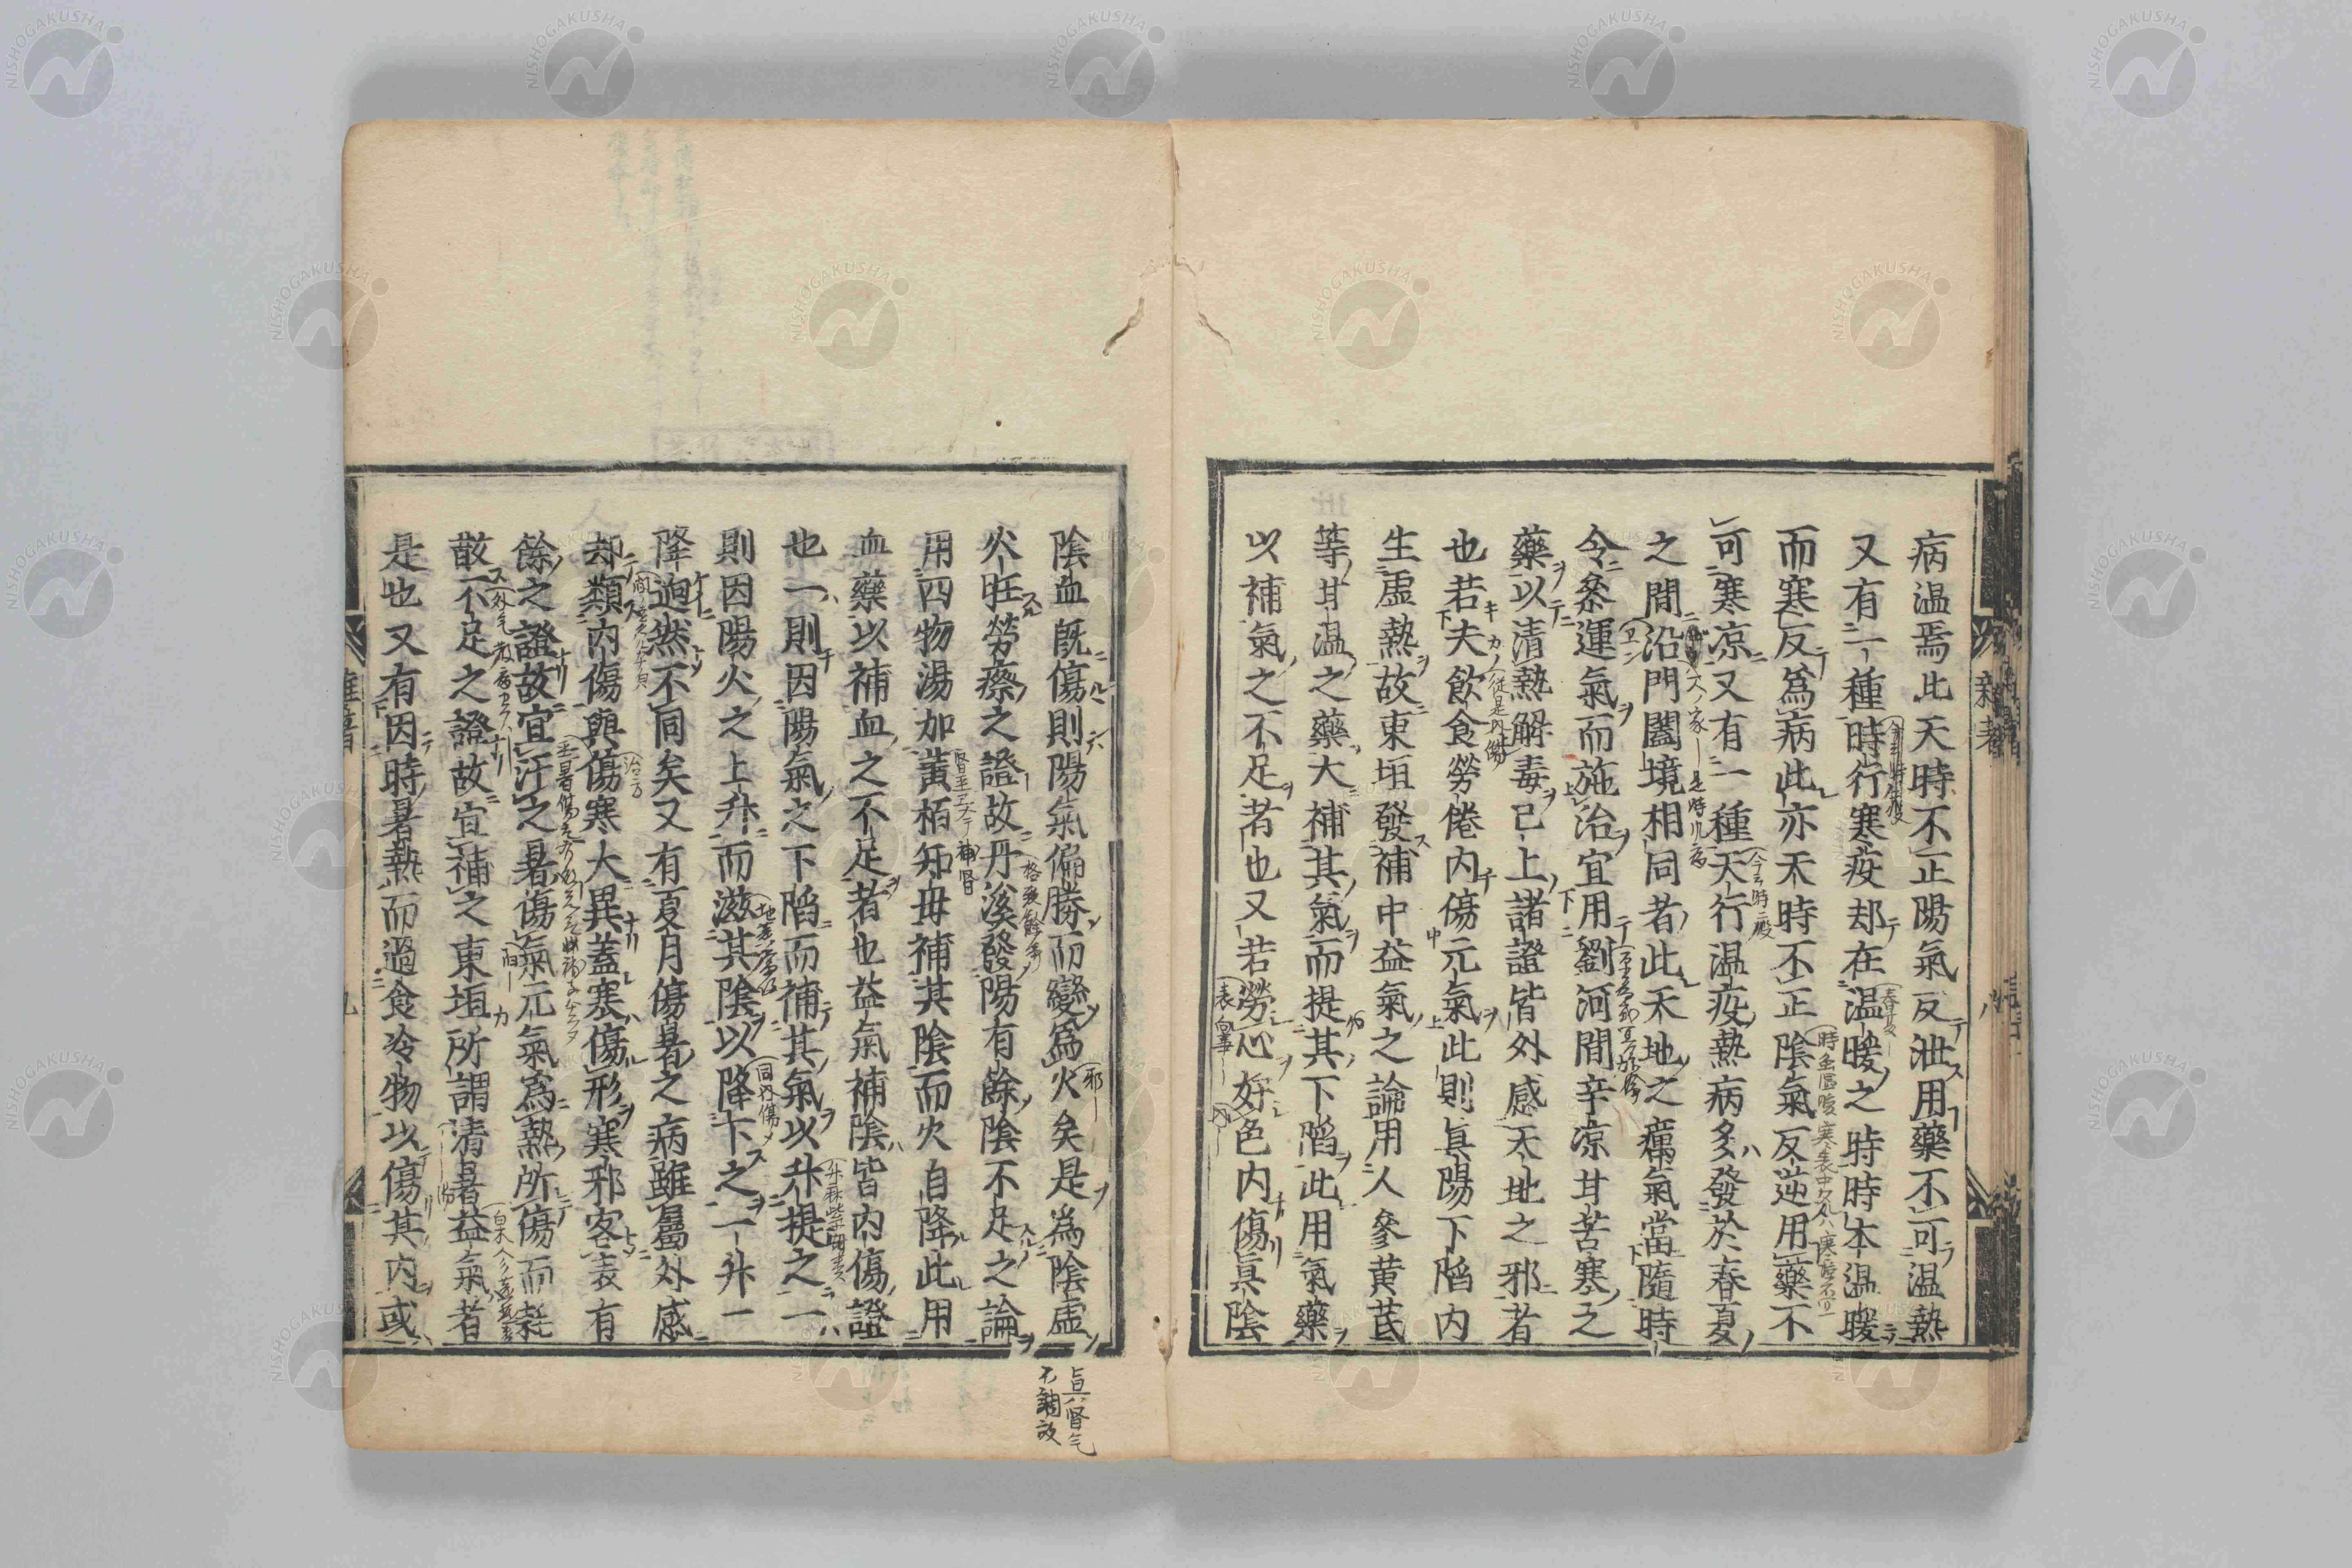 病温焉此天時不正陽氣反泄用藥不可温熱
又有一種時行寒疫却在温暖之時時本温暖
而寒反爲病此亦天時不正陰氣反逆用藥不
可寒凉又有一種天行温疫熱病多發於春夏
之間沿門闔境相同者此天地之癘氣當隨時
令叅運氣而施治宜用劉河間辛凉甘苦寒之
藥以清熱解毒已上諸證皆外感天地之邪者
也若夫飲食勞倦内傷元氣此則眞陽下陷内
生虚熱故東垣發補中益氣之論用人參黄芪
等甘温之藥大補其氣而提其下陷此用氣藥
以補氣之不足者也又若勞心好色内傷眞陰
陰血既傷則陽氣偏勝而變爲火矣是爲陰虚
火旺勞瘵之證故丹溪發陽有餘陰不足之論
用四物湯加黄栢知母補其陰而火自降此用
血藥以補血之不足者也益氣補陰皆内傷證
也一則因陽氣之下陷而補其氣以升提之一
則因陽火之上升而滋其陰以降下之一升一
降迥然不同矣又有夏月傷暑之病雖屬外感
却類内傷與傷寒大異蓋寒傷形寒邪客表有
餘之證故宜汗之暑傷氣元氣爲熱所傷而耗
散不足之證故宜補之東垣所謂清暑益氣者
是也又有因時暑熱而過食冷物以傷其内或
眞八腎气
不調故
NISHOGAKUSHA